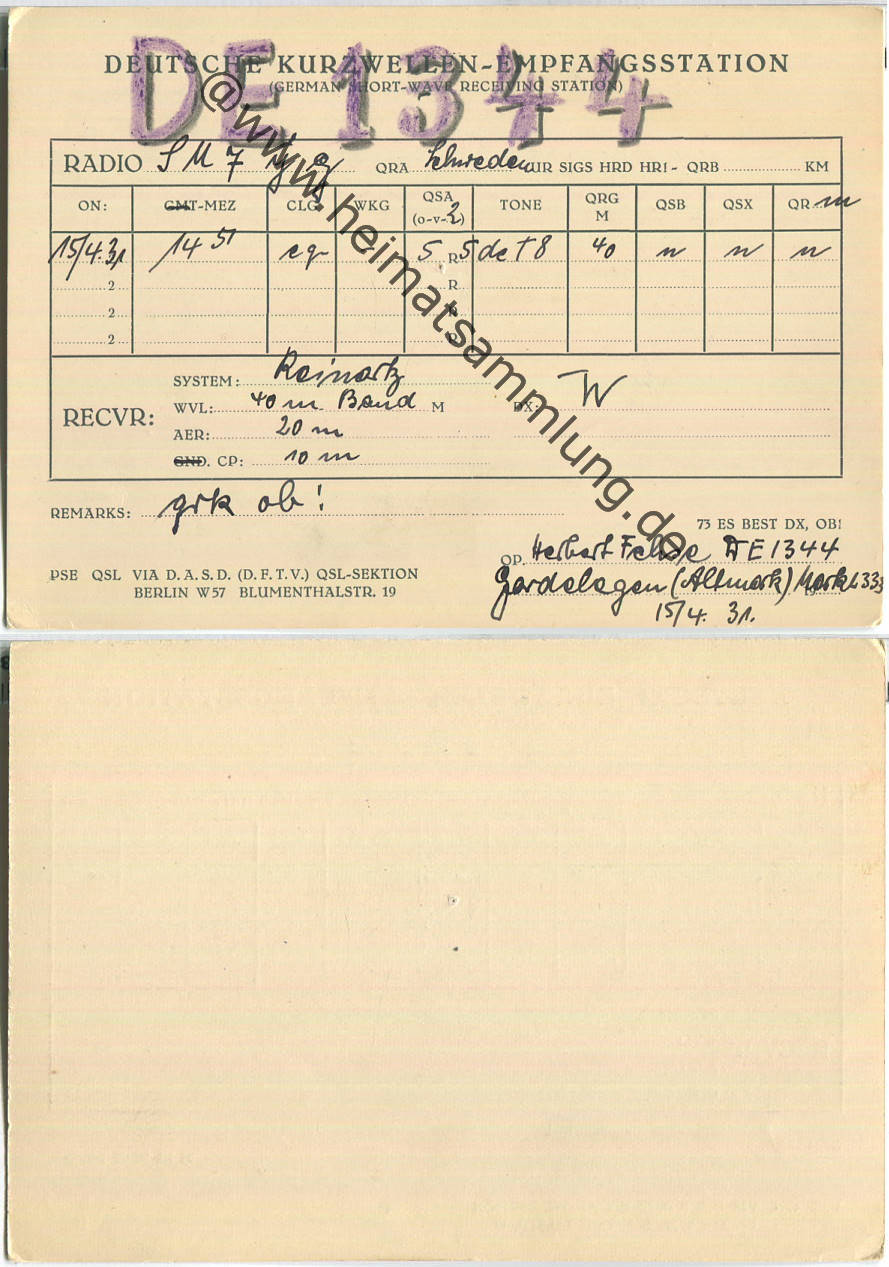 DE 1344
DEUTSCHE KURZWELLEN-EMPFANGSSTATION
(GERMAN SHORT-WAVE RECEIVING STATION)
RADIO SM7 QRA Schweden UR SIGS HRD HR! - QRB KM
ON: GMT-MEZ CLG WKG QSA (o-v-2) TONE QRG M QSB QSX QR m
15/4.31 14 51 cq - 5 R 5 dc T 8 40 n n n
2 R
2 R
2 R
RECVR:
SYSTEM: Reinartz
WVL: 40 m Band M DX: W
AER: 20 m
GND. CP: 10 m
REMARKS: grk ob!
73 ES BEST DX, OB!
OP. Herbert DE 1344
PSE QSL VIA D.A.S.D. (D.F.T.V.) QSL-SEKTION
BERLIN W57 BLUMENTHALSTR. 19
Gardelegen (Altmark)
15/4. 31.
@www.heimatsammlung.de